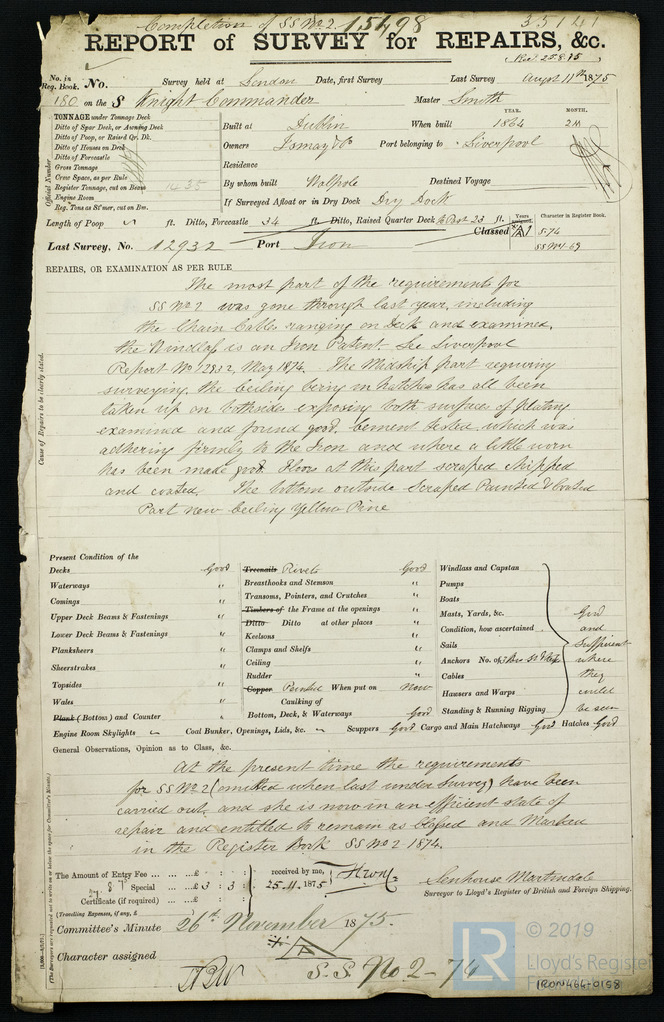 Completion of SS No. 2. 15498 35141
REPORT of SURVEY for REPAIRS, &c.
Rec. 25.8.75
No. in Reg. Book. No. Survey held at London Date, first Survey Last Survey August 11th 1875
180 on the S Knight Commander Master Smith
TONNAGE under Tonnage Deck
Ditto of Spar Deck, or Awning Deck
Ditto of Poop, or Raised Qr. Dk.
Ditto of Houses on Deck
Ditto of Forecastle
Gross Tonnage
Crew Space, as per Rule
Register Tonnage, cut on Beam 1435
Engine Room
Reg. Tons as St'mer, cut on Bm.
Official Number
YEAR. MONTH.
Built at Dublin When built 1864 2M
Owners Port belonging to Liverpool
Residence
By whom built Walpole Destined Voyage
If Surveyed Afloat or in Dry Dock Dry Dock
Length of Poop ft. Ditto, Forecastle 34 ft. Ditto, Raised Quarter Deck & Poop 23 ft. Years Character in Register Book.
Classed A1 5.74
SS No1 69
Last Survey, No. 12932 Port Iron
REPAIRS, OR EXAMINATION AS PER RULE
Cause of Repairs to be clearly stated.
The most part of the requirements for
SS No 2 was gone through last year, including
the Chain Cables ranging on Deck and examined,
the Windlass is an Iron Patent. See Liverpool
Report No 12932, May 1874. The Midship part requiring
surveying, the Ceiling being in hatches has all been
taken up on bothsides exposing both surfaces of plating
examined and found good, Cement tested which was
adhering firmly to the Iron and where a little worn
has been made good. Floors at this part scraped chipped
and coated, The bottom outside Scraped Painted & Coated
Part new Ceiling Yellow Pine
Present Condition of the
Decks Good
Waterways "
Comings "
Upper Deck Beams & Fastenings "
Lower Deck Beams & Fastenings "
Planksheers "
Sheerstrakes "
Topsides "
Wales "
Plank (Bottom) and Counter "
Treenails Rivets Good
Breasthooks and Stemson "
Transoms, Pointers, and Crutches "
Timbers of the Frame at the openings "
Ditto Ditto at other places "
Keelsons "
Clamps and Shelfs "
Ceiling "
Rudder "
Copper Painted When put on Now
Caulking of
Bottom, Deck, & Waterways Good
Windlass and Capstan
Pumps
Boats
Masts, Yards, &c.
Condition, how ascertained
Sails
Anchors No. of
Cables
Hawsers and Warps
Standing & Running Rigging
Good
and
Sufficient
where
they
could
be seen
Engine Room Skylights Coal Bunker, Openings, Lids, &c. Scuppers Good Cargo and Main Hatchways Good Hatches Good
General Observations, Opinion as to Class, &c.
At the present time the requirements
for SS No 2 (omitted when last under Survey) have been
carried out, and she is now in an efficient state of
repair and entitled to remain as Classed and Marked
in the Register Book SS No 2 1874.
The Amount of Entry Fee ... ... £ : : received by me,
Special ... £ 3 : 3 : 25.11.1875
Certificate (if required) ... £ : :
(Travelling Expenses, if any, £ )
Senhouse Martindale
Surveyor to Lloyd's Register of British and Foreign Shipping.
Committee's Minute 26th November 1875.
Character assigned A
S.S. No 2 - 74
(The Surveyors are requested not to write on or below the space for Committee's Minute.)
LR
© 2019
Lloyd's Register
IRON464-0158